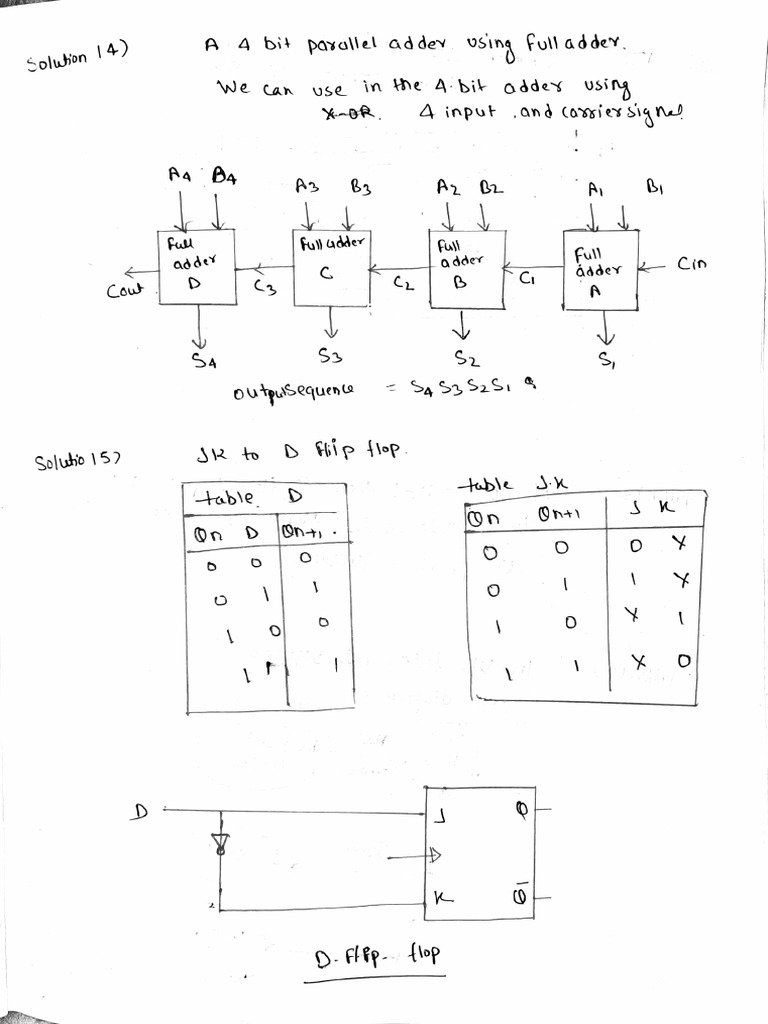 Solution 14)
A 4 bit parallel adder using full adder.
We can use in the 4 bit adder using
X-OR. 4 input .and carrier signal
A4 B4 A3 B3 A2 B2 A1 B1
Full adder D
Full adder C
Full adder B
Full adder A
Cout C3 C2 C1 Cin
S4 S3 S2 S1
outputsequence = S4 S3 S2 S1
Solutio 15)
JK to D flip flop.
table D
Qn D Qn+1.
0 0 0
0 1 1
1 0 0
1 1 1
table J.K
Qn Qn+1 J K
0 0 0 X
0 1 1 X
1 0 X 1
1 1 X 0
D J Q
K Q̅
D-flip-flop